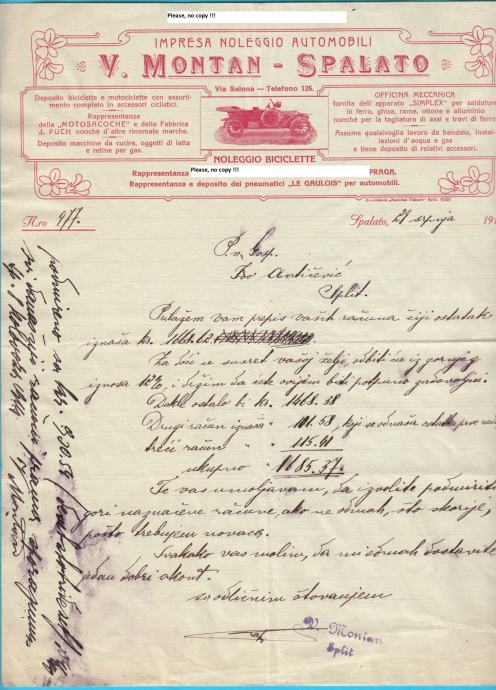 Please, no copy !!!
IMPRESA NOLEGGIO AUTOMOBILI
V. MONTAN - SPALATO
Via Salona — Telefono 126.
Deposito biciclette e motociclette con assortimento completo in accessori ciclistici.
Rappresentanza
della „MOTOSACOCHE" e della Fabbrica
J. PUCH nonchè d'altre rinomate marche.
Deposito macchine da cucire, oggetti di latta
e retine per gas.
OFFICINA MECCANICA
fornita dell'apparato "SIMPLEX" per saldature
in ferro, ghisa, rame, ottone e alluminio
nonchè per la tagliature di assi e travi di ferro
Assume qualsivoglia lavoro da bandaio, installazioni
d'acqua e gas
e tiene deposito di relativi accessori.
NOLEGGIO BICICLETTE
Rappresentanza Please, no copy !!! PRAGA.
Rappresentanza e deposito dei pneumatici "LE GAULOIS" per automobili.
N.ro 977.
Spalato, 29 srpnja 191
P. n. Gosp.
Ivo Antičević
Split.
Prilažem vam prepis vaših računa čiji ostatak
ignaša kr. 1668.62
Za doći u susret vašoj želji, odbiti ću iz gornjeg
iznosa 12%, i držim da ćete ovijem biti potpuno zadovoljni.
Dakle ostalo bi kr. 1468.38
Drugi račun ignaša " 101.58, koji se odnaša
treći račun " " 115.41
ukupno " 1685.37.
Te vas umoljavam, da izvolite podmiriti
gori naznačene račune, ako ne odmah, što skorije,
pošto trebujem novaca.
Svakako vas molim, da mi odmah dostavite
jedan dobri akont.
sa odličnim štovanjem
V. Montan
Split